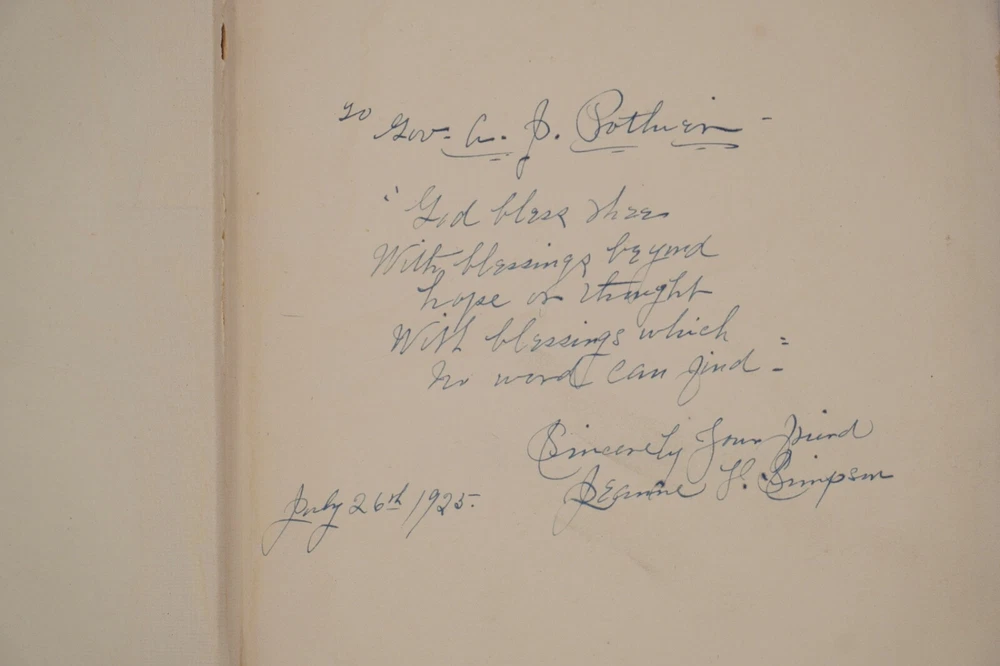 To
Gov. A. J. Pothier -
"God bless thee
With blessings beyond
hope or thought
With blessings which
no word can find - "
Sincerely Your Friend
Jeanne H. Simpson
July 26th 1925.